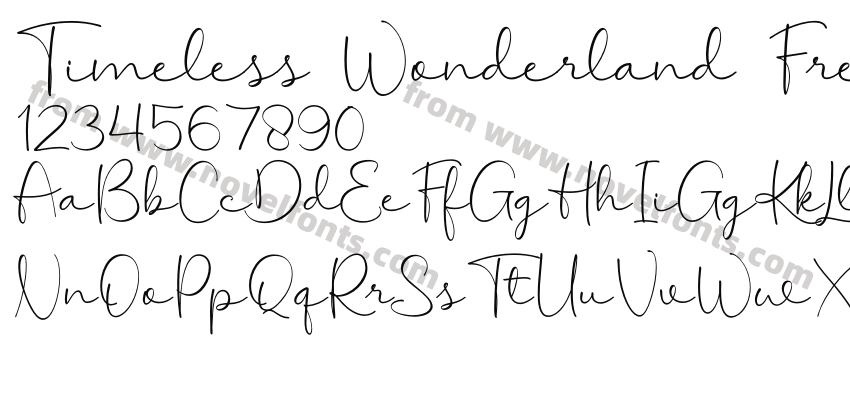 Timeless Wonderland Fre
1234567890
AaBbCcDdEeFfGgHhIiGgKkLl
NnOoPpQqRrSsTtUuVvWwX
from www.novelfonts.com
from www.novelfonts.com